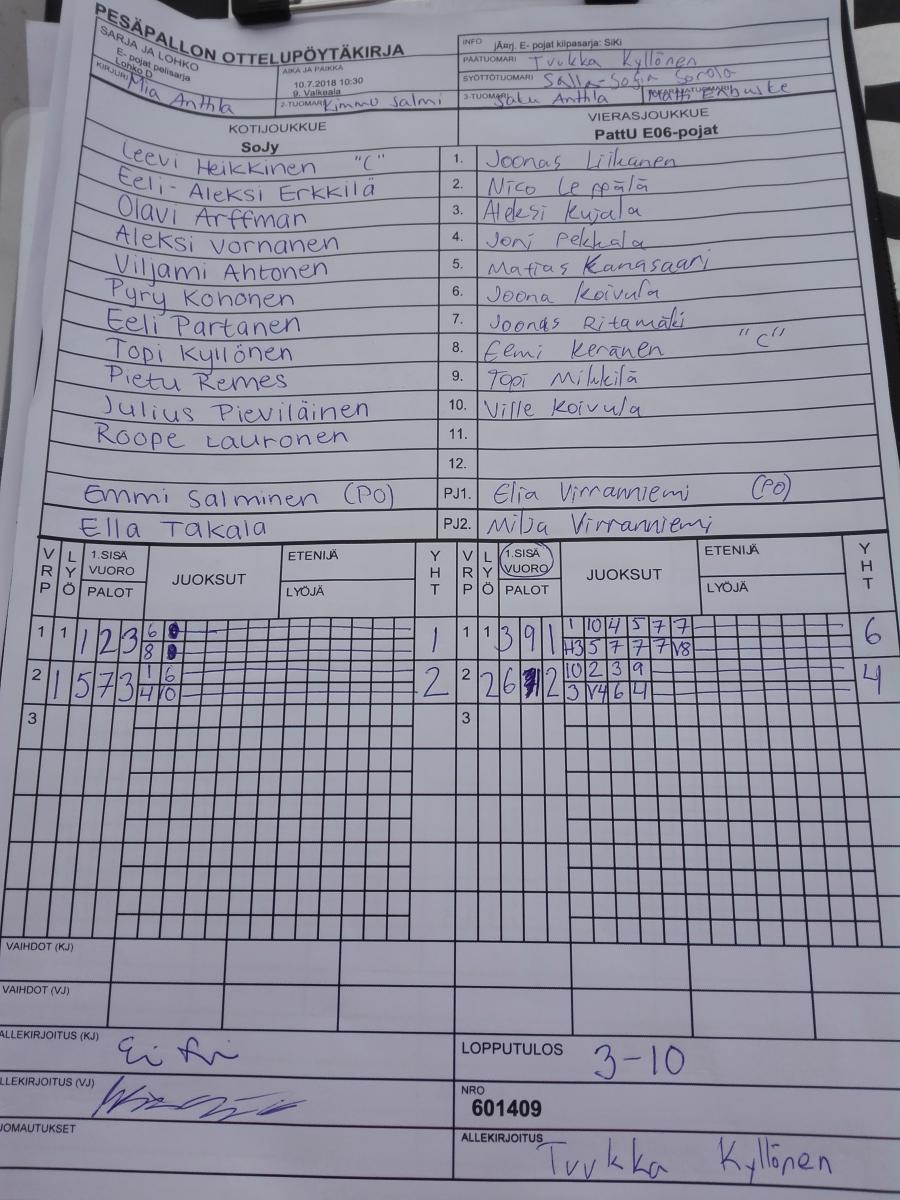 PESÄPALLON OTTELUPÖYTÄKIRJA
SARJA JA LOHKO
E- pojat pelisarja
Lohko D
KIRJURI Mia Anthla
AIKA JA PAIKKA
10.7.2018 10:30
9. Valkeala
2-TUOMARI Kimmo Salmi
INFO jÄrrj. E- pojat kilpasarja: SiKi
PÄÄTUOMARI Tuukka Kyllönen
SYÖTTÖTUOMARI Salla-Sofia Sorola
3-TUOMARI Saku Anthla
KOTIJOUKKUE
SoJy
VIERASJOUKKUE
PattU E06-pojat
Leevi Heikkinen "C" 1. Joonas Liikanen
Eeli-Aleksi Erkkilä 2. Nico Leppälä
Olavi Arffman 3. Aleksi Kujala
Aleksi Vornanen 4. Joni Pekkala
Viljami Ahtonen 5. Matias Kanasaari
Pyry Kohonen 6. Joona Koivula
Eeli Partanen 7. Joonas Ritamäki
Topi Kyllönen 8. Eemi Keränen "C"
Pietu Remes 9. Topi Mikkilä
Julius Pieviläinen 10. Ville Koivula
Roope Lauronen 11.
12.
Emmi Salminen (PO) PJ1. Elia Virranniemi (PO)
Ella Takala PJ2. Milja Virranniemi
VRP LYÖ 1.SISÄ VUORO PALOT JUOKSUT ETENIJÄ LYÖJÄ YHT VRP LYÖ 1.SISÄ VUORO PALOT JUOKSUT ETENIJÄ LYÖJÄ YHT
1 1 1 2 3 6 1 1 1 3 9 1 1 10 4 5 7 7 6
8 H3 5 7 7 7 V8
2 1 5 7 3 1 6 2 2 2 6 2 10 2 3 9 4
4 10 3 V4 6 4
3 3
VAIHDOT (KJ)
VAIHDOT (VJ)
ALLEKIRJOITUS (KJ)
LOPPUTULOS 3-10
ALLEKIRJOITUS (VJ)
NRO
601409
HUOMAUTUKSET
ALLEKIRJOITUS Tuukka Kyllönen